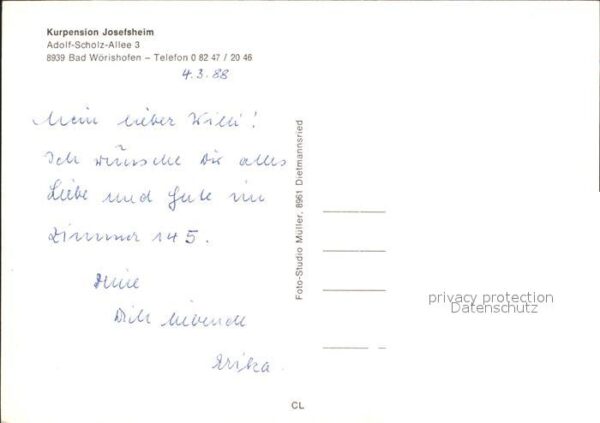 Kurpension Josefsheim
Adolf-Scholz-Allee 3
8939 Bad Wörishofen – Telefon 0 82 47 / 20 46
4.3.88
Mein lieber Willi!
Ich wünsche Dir alles
Liebe und Gute im
Zimmer 145.
Deine
Dich liebende
Erika
Foto-Studio Müller, 8961 Dietmannsried
privacy protection
Datenschutz
CL